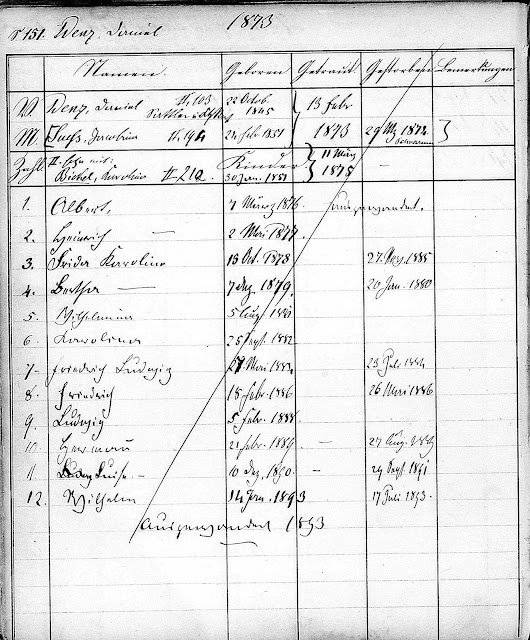 S. 151. Denz, Daniel 1873
Namen. Geboren Getraut. Gestorben Bemerkungen
V. Denz, Daniel II. 103 22 Octob. 1845 13 Febr
M. Fuchs, Jacobina II. 194 24 Feb 1851 1873 29 1874
Zahl II. Ehe mit Kinder 11 März
Bickel, Karolina II 210 30 Jan. 1851 1875 —
1. Albert, 7 März 1876 — ausgewandert.
2. Heinrich — 2 Mai 1877
3. Frida Karolina 13 Oct. 1878 27. Dez. 1885
4. Bertha — 7 Dez. 1879. 20 Jan. 1880
5. Wilhelmina 5 Aug 1881
6 Karolina 25 Sept. 1882
7. Friedrich Ludwig 27 Mai 1884 23 Juli 1884
8. Friedrich 18 Febr. 1886 26 Mai 1886
9. Ludwig 5 Febr. 1888
10. Herman 21 Febr. 1889 — 27 Aug. 1889
11 Luise — 10 Dez. 1890 — 29 Sept 1891
12. Wilhelm 14 Jan. 1893 17 Juli 1893.
Ausgewandert 1893